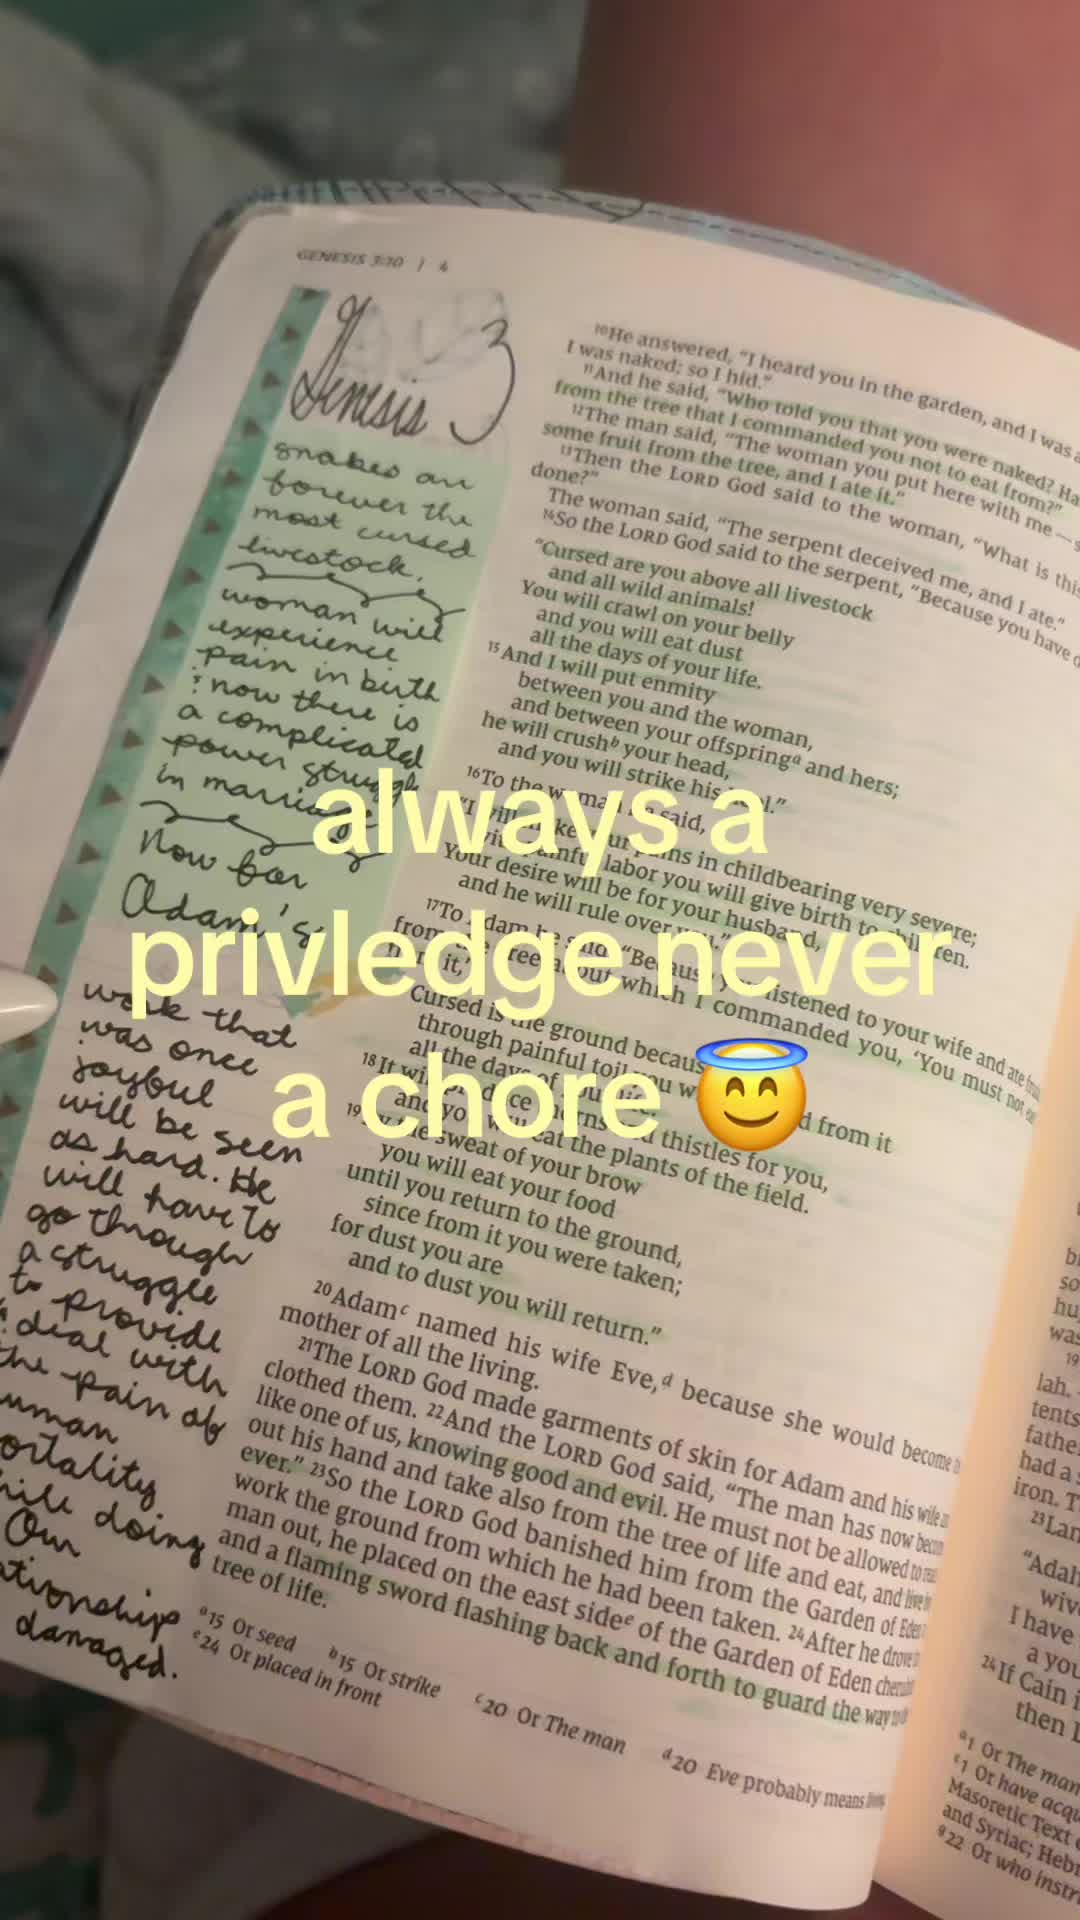 GENESIS 3:10 | 4
Genesis 3
snakes are
forever the
most cursed
livestock.
woman will
experience
pain in birth
& now there is
a complicated
power struggle
in marriage
Now for
Adam's
work that
was once
joyful
will be seen
as hard. He
will have to
go through
a struggle
to provide
& deal with
the pain of
doing
Our
damaged.
10He answered, "I heard you in the garden, and I was
I was naked; so I hid."
11And he said, "Who told you that you were naked? Ha
from the tree that I commanded you not to eat from?"
12The man said, "The woman you put here with me—
some fruit from the tree, and I ate it."
13Then the LORD God said to the woman, "What is this
done?"
The woman said, "The serpent deceived me, and I ate."
14So the LORD God said to the serpent, "Because you have
"Cursed are you above all livestock
and all wild animals!
You will crawl on your belly
and you will eat dust
all the days of your life.
15And I will put enmity
between you and the woman,
and between your offspringa and hers;
he will crushb your head,
and you will strike his heel."
16To the woman he said,
"I will make your pains in childbearing very severe;
with painful labor you will give birth to children.
Your desire will be for your husband,
and he will rule over you."
17To Adam he said, "Because you listened to your wife and ate fruit
from the tree about which I commanded you, 'You must not eat
from it,'
Cursed is the ground because
through painful toil you w d from it
all the days of your life.
18It will produce thorns and thistles for you,
and you will eat the plants of the field.
19By the sweat of your brow
you will eat your food
until you return to the ground,
since from it you were taken;
for dust you are
and to dust you will return."
20Adamc named his wife Eve,d because she would become
mother of all the living.
21The LORD God made garments of skin for Adam and his wife
clothed them. 22And the LORD God said, "The man has now become
like one of us, knowing good and evil. He must not be allowed to reach
out his hand and take also from the tree of life and eat, and live
ever." 23So the LORD God banished him from the Garden of Eden
work the ground from which he had been taken. 24After he drove
man out, he placed on the east sidee of the Garden of Eden cherubim
and a flaming sword flashing back and forth to guard the way to
tree of life.
a15 Or seed b15 Or strike c20 Or The man d20 Eve probably means living
e24 Or placed in front
always a
privledge never
a chore 😇
19
lah.
tents
father
had a s
iron. T
23Lan
"Adah
wive
I have
a you
24If Cain i
then L
a1 Or The man
c1 Or have acqu
Masoretic Text
and Syriac; Hebr
g22 Or who instr